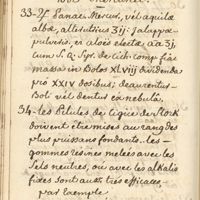 33- ℞ Panacæ Mercur, vel aquilæ
albæ, altritutius ʒij: Jalappæ
pulveris, et aloës electæ aa ʒj,
cum S. Q. Syr. de cich. comp. fiat
massa in Bolos XLVIII dividenda
pro XXIV dosibus; deaurentur
Boli vel dentur in nebula.
34- les Pilules de Cigüe de Stork
doivent être mises au rang des
plus puissans fondants. les
gommes résines melées avec les
sels neutres, ou avec les alkalis
fixes sont aussi très efficaces,
par Exemple